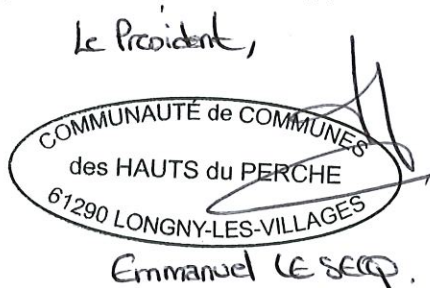 Le Président,
COMMUNAUTÉ de COMMUNES
des HAUTS du PERCHE
61290 LONGNY-LES-VILLAGES
Emmanuel LE SECQ.